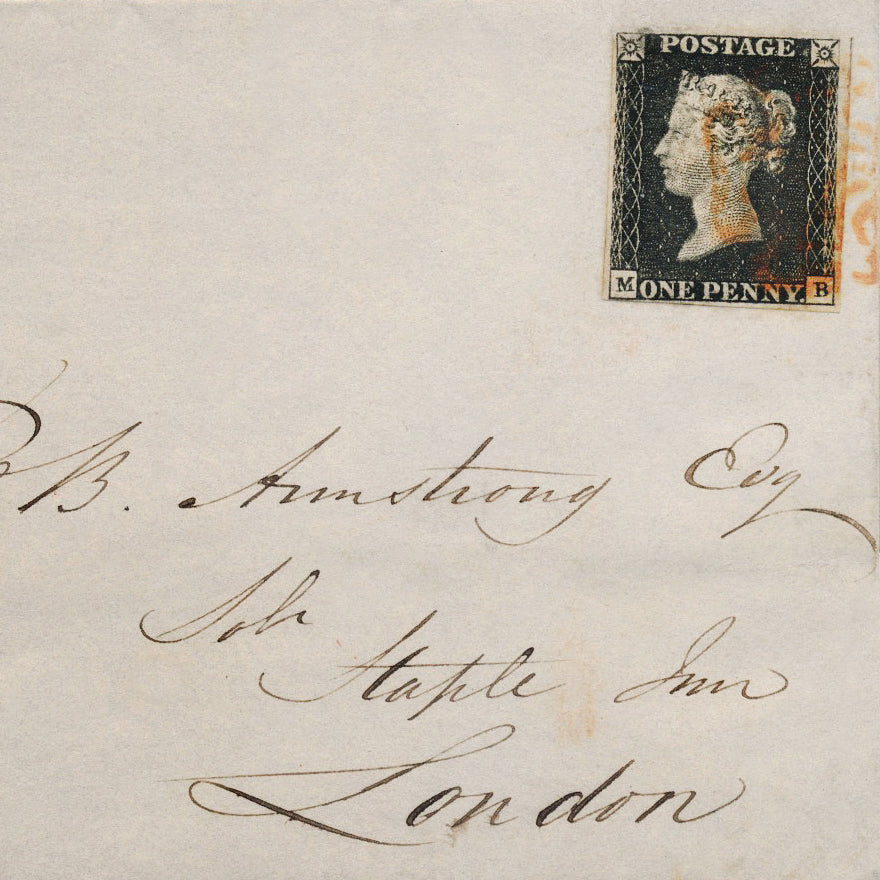 POSTAGE
M ONE PENNY. B
B. Armstrong Esq
Solr
Staple Inn
London